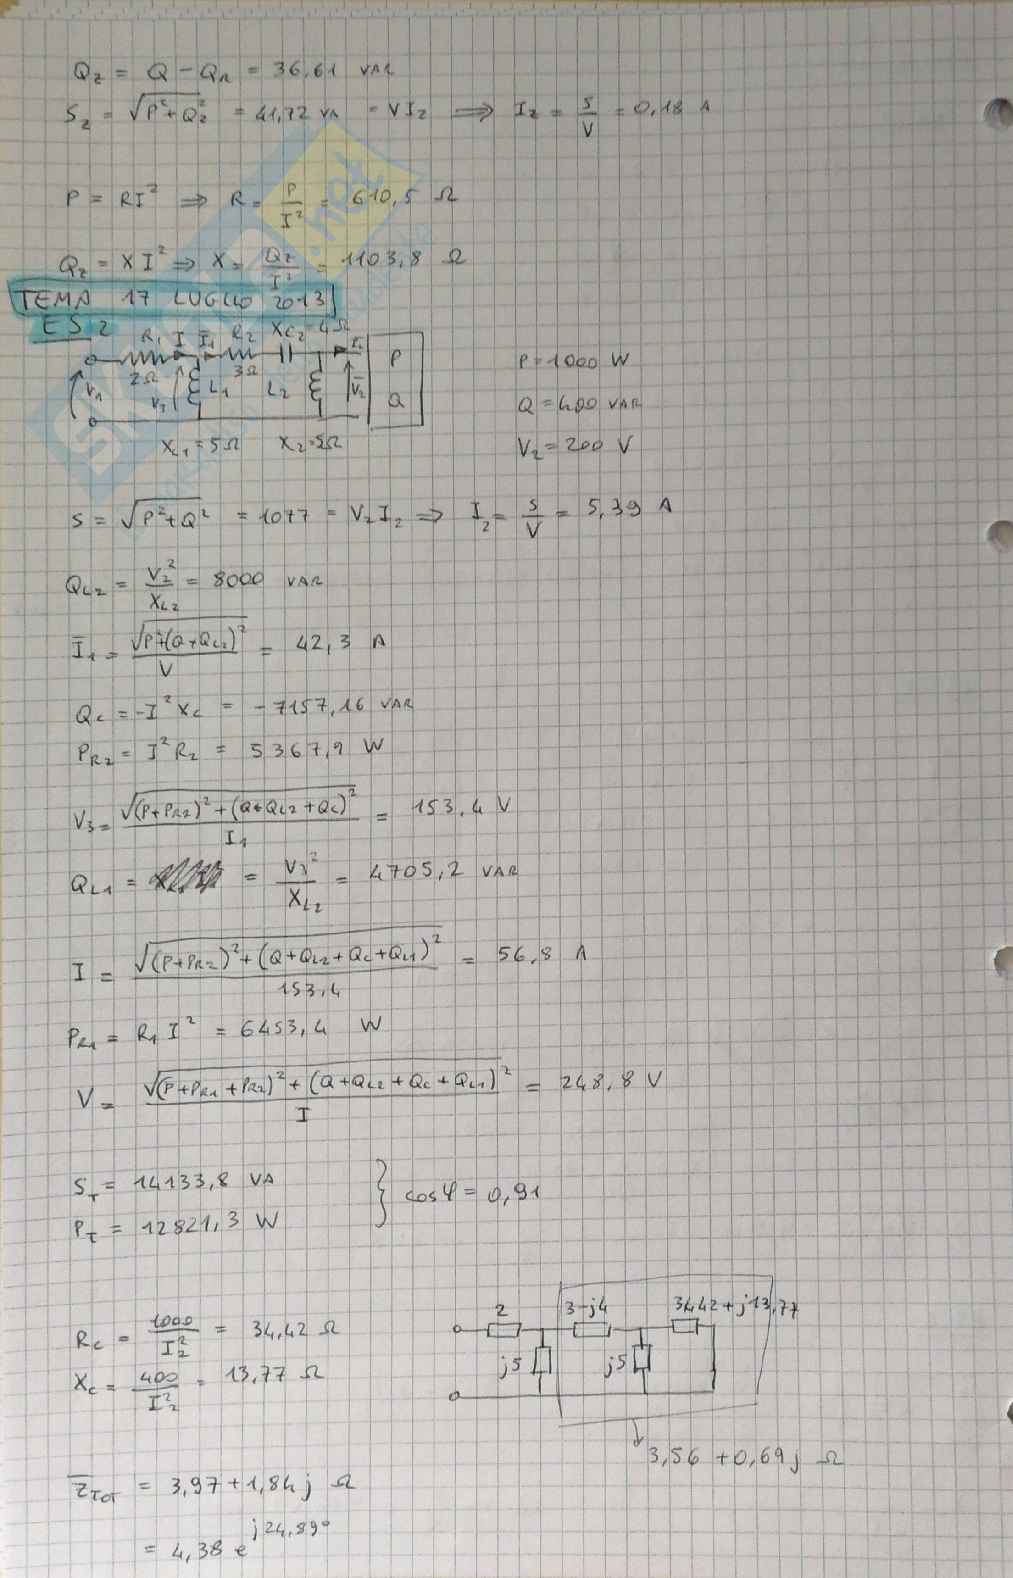 Q_z = Q - Q_R = 36,61 VAR
S_z = √(P²+Q_z²) = 41,72 VA = V I_z ⟹ I_z = S/V = 0,18 A
P = RI² ⟹ R = P/I² = 610,5 Ω
Q_z = X I² ⟹ X = Q_z/I² = 1103,8 Ω
TEMA 17 LUGLIO 2013
ES 2
R₁ I I₁ R₂ X_C₂ = 4Ω I₂
2Ω 3Ω
V₁ V₃ L₁ L₂ V₂ P Q
X_L₁ = 5Ω X_2 = 5Ω
P = 1000 W
Q = 400 VAR
V₂ = 200 V
S = √(P²+Q²) = 1077 = V₂ I₂ ⟹ I₂ = S/V = 5,39 A
Q_L2 = V₂²/X_L2 = 8000 VAR
I₁ = √(P²+(Q+Q_L2)²)/V = 42,3 A
Q_C = -I² X_C = -7157,16 VAR
P_R2 = I² R₂ = 5367,9 W
V₃ = √((P+P_R2)² + (Q+Q_L2+Q_C)²)/I₁ = 153,4 V
Q_L1 = = V₃²/X_L2 = 4705,2 VAR
I = √((P+P_R2)² + (Q+Q_L2+Q_C+Q_L1)²)/153,4 = 56,8 A
P_R1 = R₁ I² = 6453,4 W
V = √((P+P_R1+P_R2)² + (Q+Q_L2+Q_C+Q_L1)²)/I = 248,8 V
S_T = 14133,8 VA
P_T = 12821,3 W
} cosφ = 0,91
R_C = 1000/I₂² = 34,42 Ω
X_C = 400/I₂² = 13,77 Ω
2 3-j4 34,42+j13,77
j5 j5
3,56 + 0,69j Ω
Z_TOT = 3,97 + 1,84j Ω
= 4,38 e^(j24,89°)